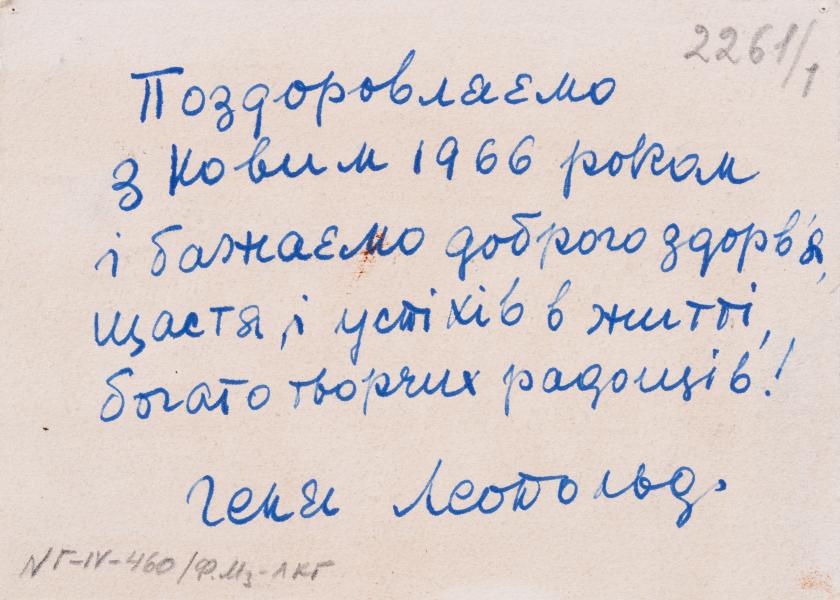 2261/1
Поздоровляємо
з Новим 1966 роком
і бажаємо доброго здоров'я,
щастя, і успіхів в житті,
богато творчих радощів!
Геня Леопольд.
№ Г-IV-460/Ф.Мз-ЛКГ